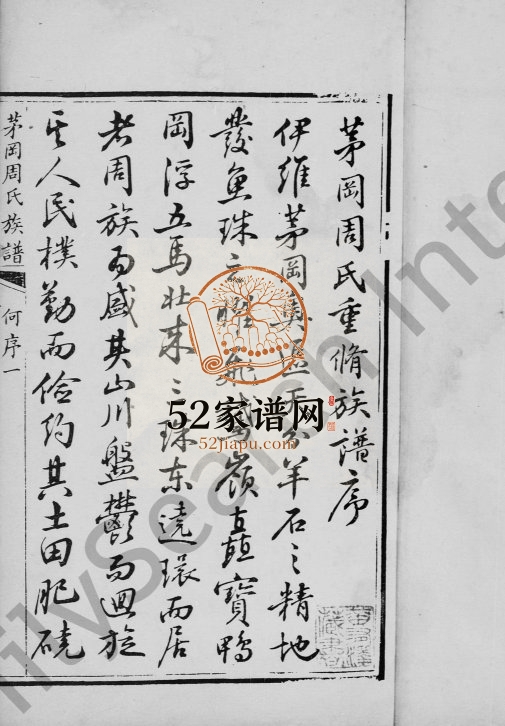 茅岡周氏重脩族譜序
伊維茅岡奧區天分羊石之精地
發魚珠之耀飛鵞嶺直矗寶鴨
岡浮五馬壯來之珠東遶環而居
者周族為盛其山川盤鬱而迴旋
其人民樸勤而儉約其土田肥磽
茅岡周氏族譜
何序一
52家谱网
52jiapu.com
ilySearch Inte